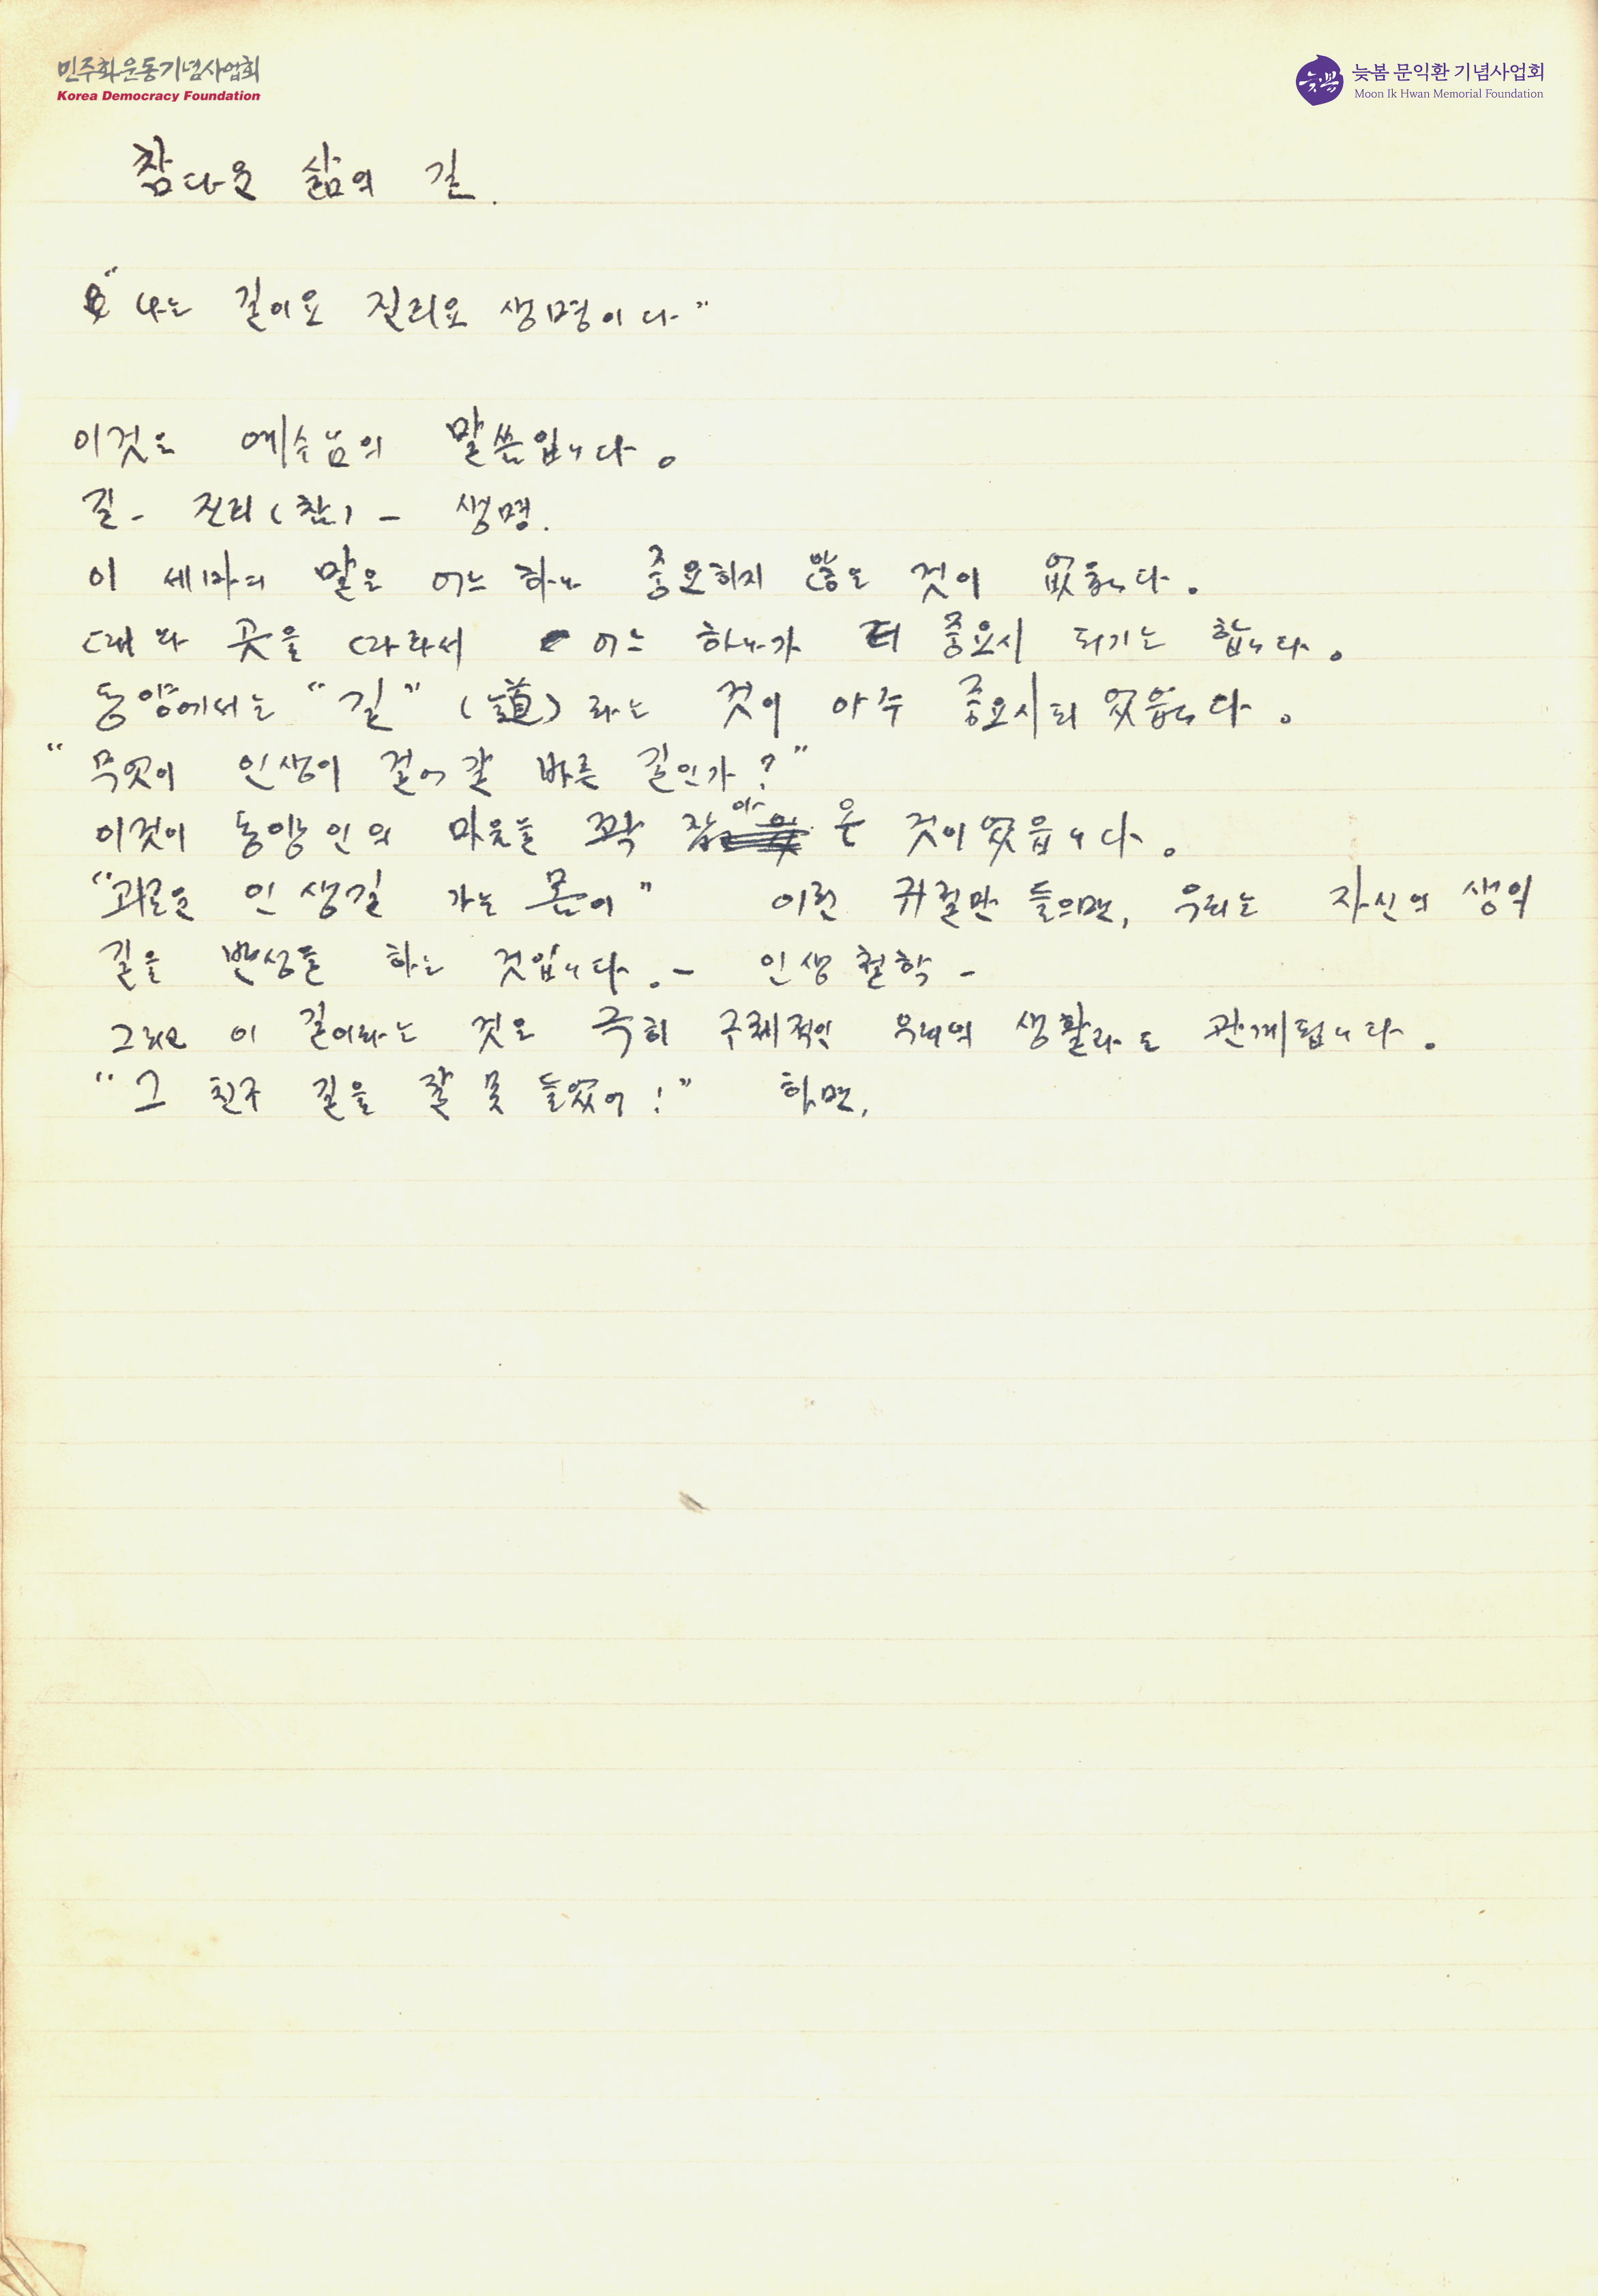 민주화운동기념사업회
Korea Democracy Foundation
늦봄 문익환 기념사업회
Moon Ik Hwan Memorial Foundation
참다운 삶의 길.
"나는 길이요 진리요 생명이다"
이것은 예수님의 말씀입니다.
길- 진리(참) - 생명.
이 세마디 말은 어느 하나 중요하지 않은 것이 없읍니다.
때와 곳을 따라서 어느 하나가 더 중요시 되기는 합니다.
동양에서는 "길" (道)라는 것이 아주 중요시되었읍니다.
"무엇이 인생이 걸어갈 바른 길인가?"
이것이 동양인의 마음을 꽉 잡아 온 것이었읍니다.
"괴로운 인생길 가는 몸이" 이런 귀절만 들으면, 우리는 자신의 생의
길을 반성을 하는 것입니다. - 인생철학 -
그리고 이 길이라는 것은 극히 구체적인 우리의 생활과도 관계됩니다.
"그 친구 길을 잘 못 들었어!" 하면,